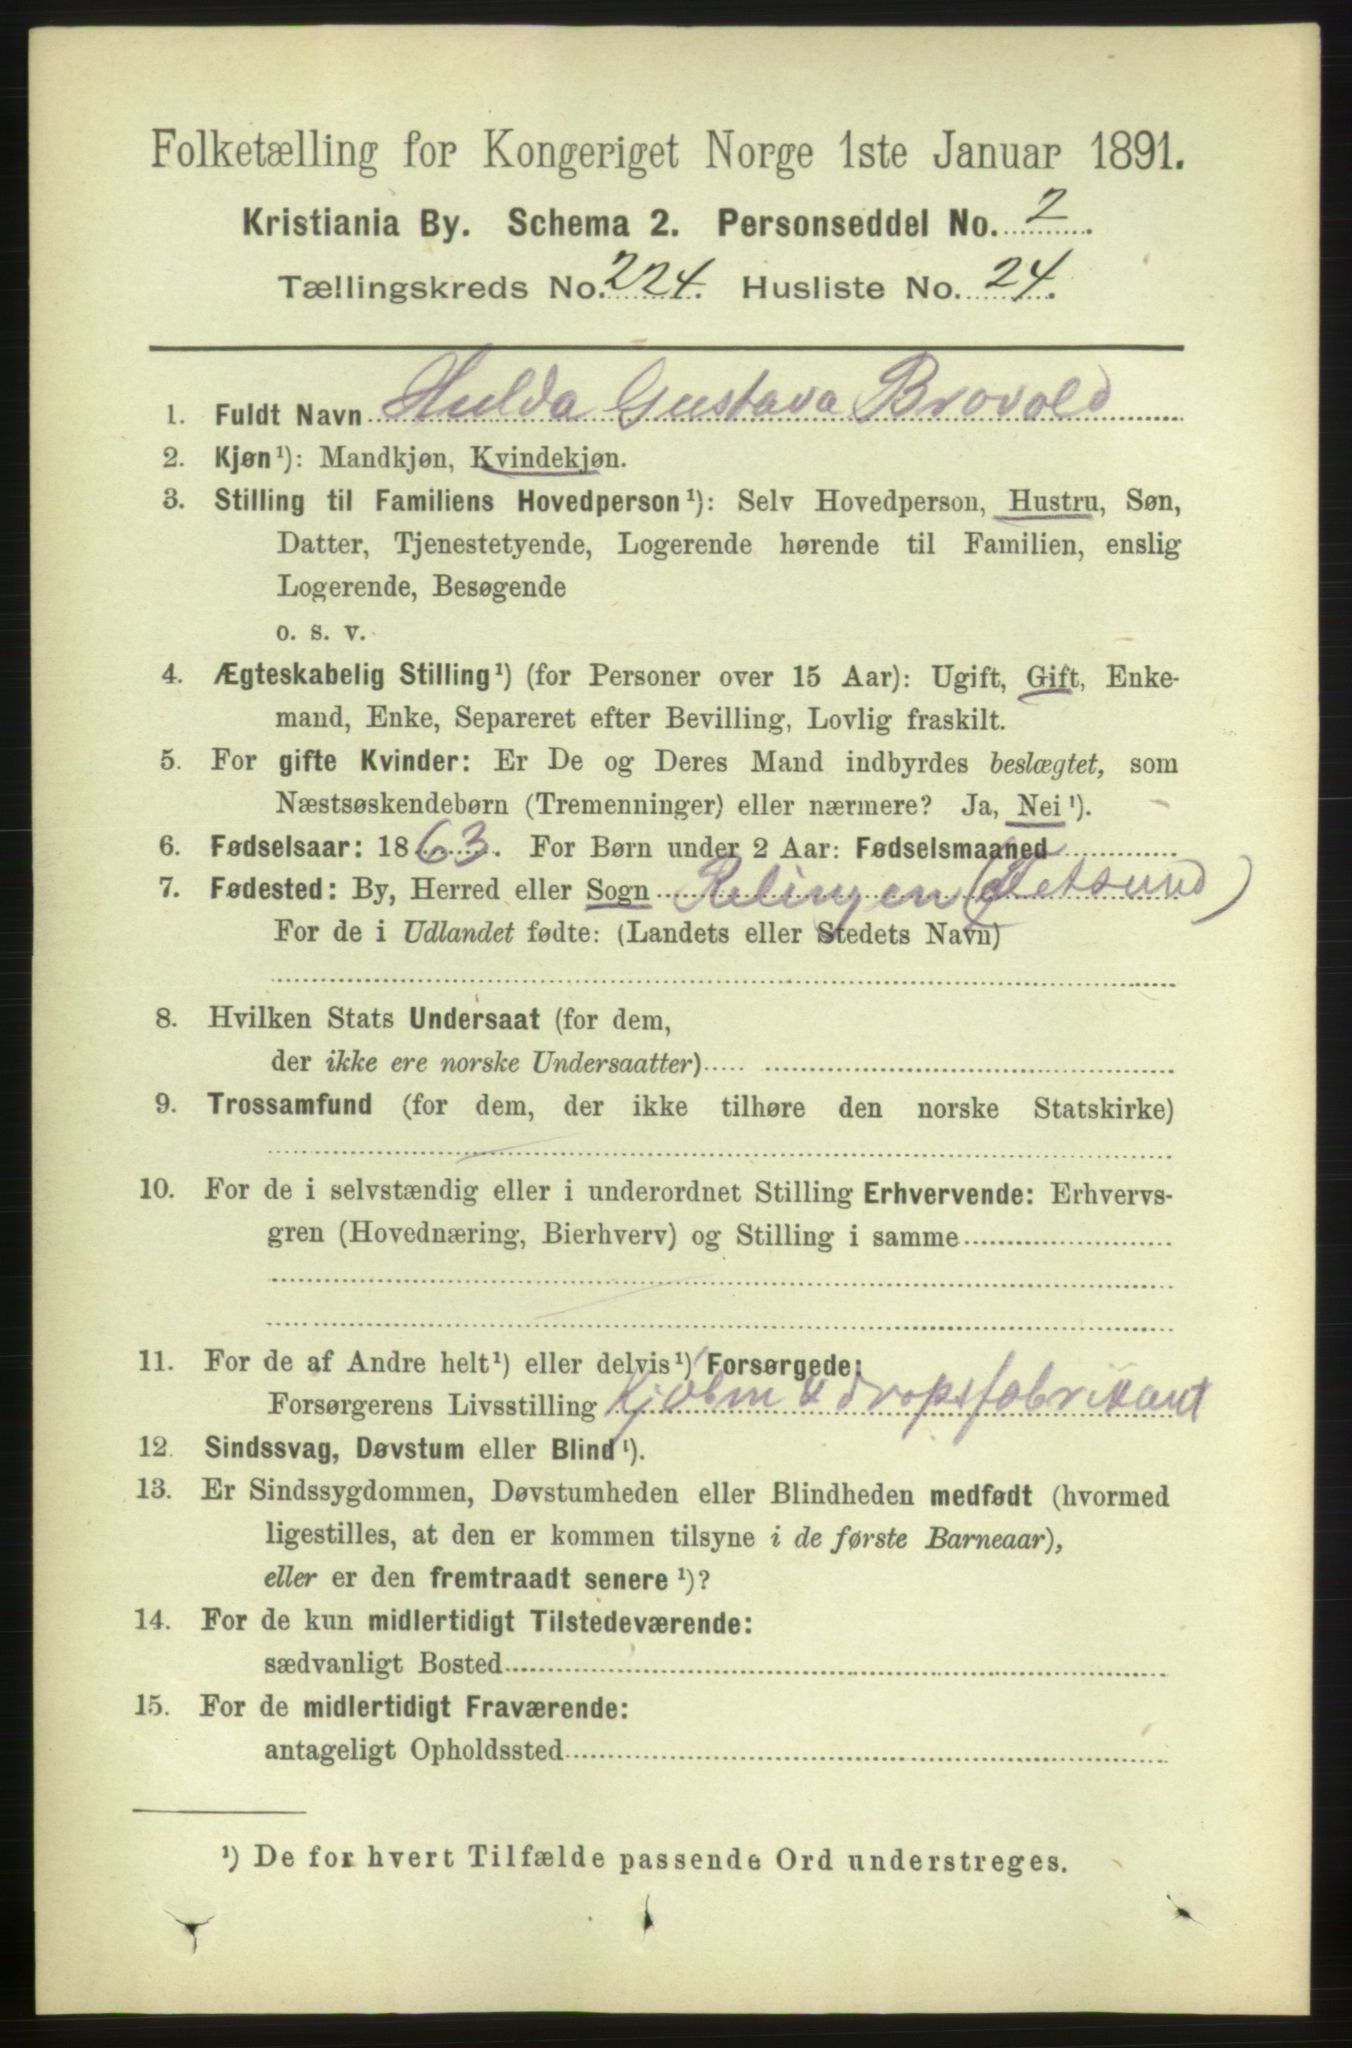 Folketælling for Kongeriget Norge 1ste Januar 1891.
Kristiania By. Schema 2. Personseddel No. 2.
Tællingskreds No. 224. Husliste No. 24.
1. Fuldt Navn Hulda Gustava Brovold
2. Kjøn¹): Mandkjøn, Kvindekjøn.
3. Stilling til Familiens Hovedperson¹): Selv Hovedperson, Hustru, Søn,
Datter, Tjenestetyende, Logerende hørende til Familien, enslig
Logerende, Besøgende
o. s. v.
4. Ægteskabelig Stilling¹) (for Personer over 15 Aar): Ugift, Gift, Enke-
mand, Enke, Separeret efter Bevilling, Lovlig fraskilt.
5. For gifte Kvinder: Er De og Deres Mand indbyrdes beslægtet, som
Næstsøskendebørn (Tremenninger) eller nærmere? Ja, Nei¹).
6. Fødselsaar: 1863. For Børn under 2 Aar: Fødselsmaaned
7. Fødested: By, Herred eller Sogn Relingen (Fetsund)
For de i Udlandet fødte: (Landets eller Stedets Navn)
8. Hvilken Stats Undersaat (for dem,
der ikke ere norske Undersaatter)
9. Trossamfund (for dem, der ikke tilhøre den norske Statskirke)
10. For de i selvstændig eller i underordnet Stilling Erhvervende: Erhvervs-
gren (Hovednæring, Bierhverv) og Stilling i samme
11. For de af Andre helt¹) eller delvis¹) Forsørgede:
Forsørgerens Livsstilling Kjøbm & dropsfabrikant
12. Sindssvag, Døvstum eller Blind¹).
13. Er Sindssygdommen, Døvstumheden eller Blindheden medfødt (hvormed
ligestilles, at den er kommen tilsyne i de første Barneaar),
eller er den fremtraadt senere¹)?
14. For de kun midlertidigt Tilstedeværende:
sædvanligt Bosted
15. For de midlertidigt Fraværende:
antageligt Opholdssted
¹) De for hvert Tilfælde passende Ord understreges.